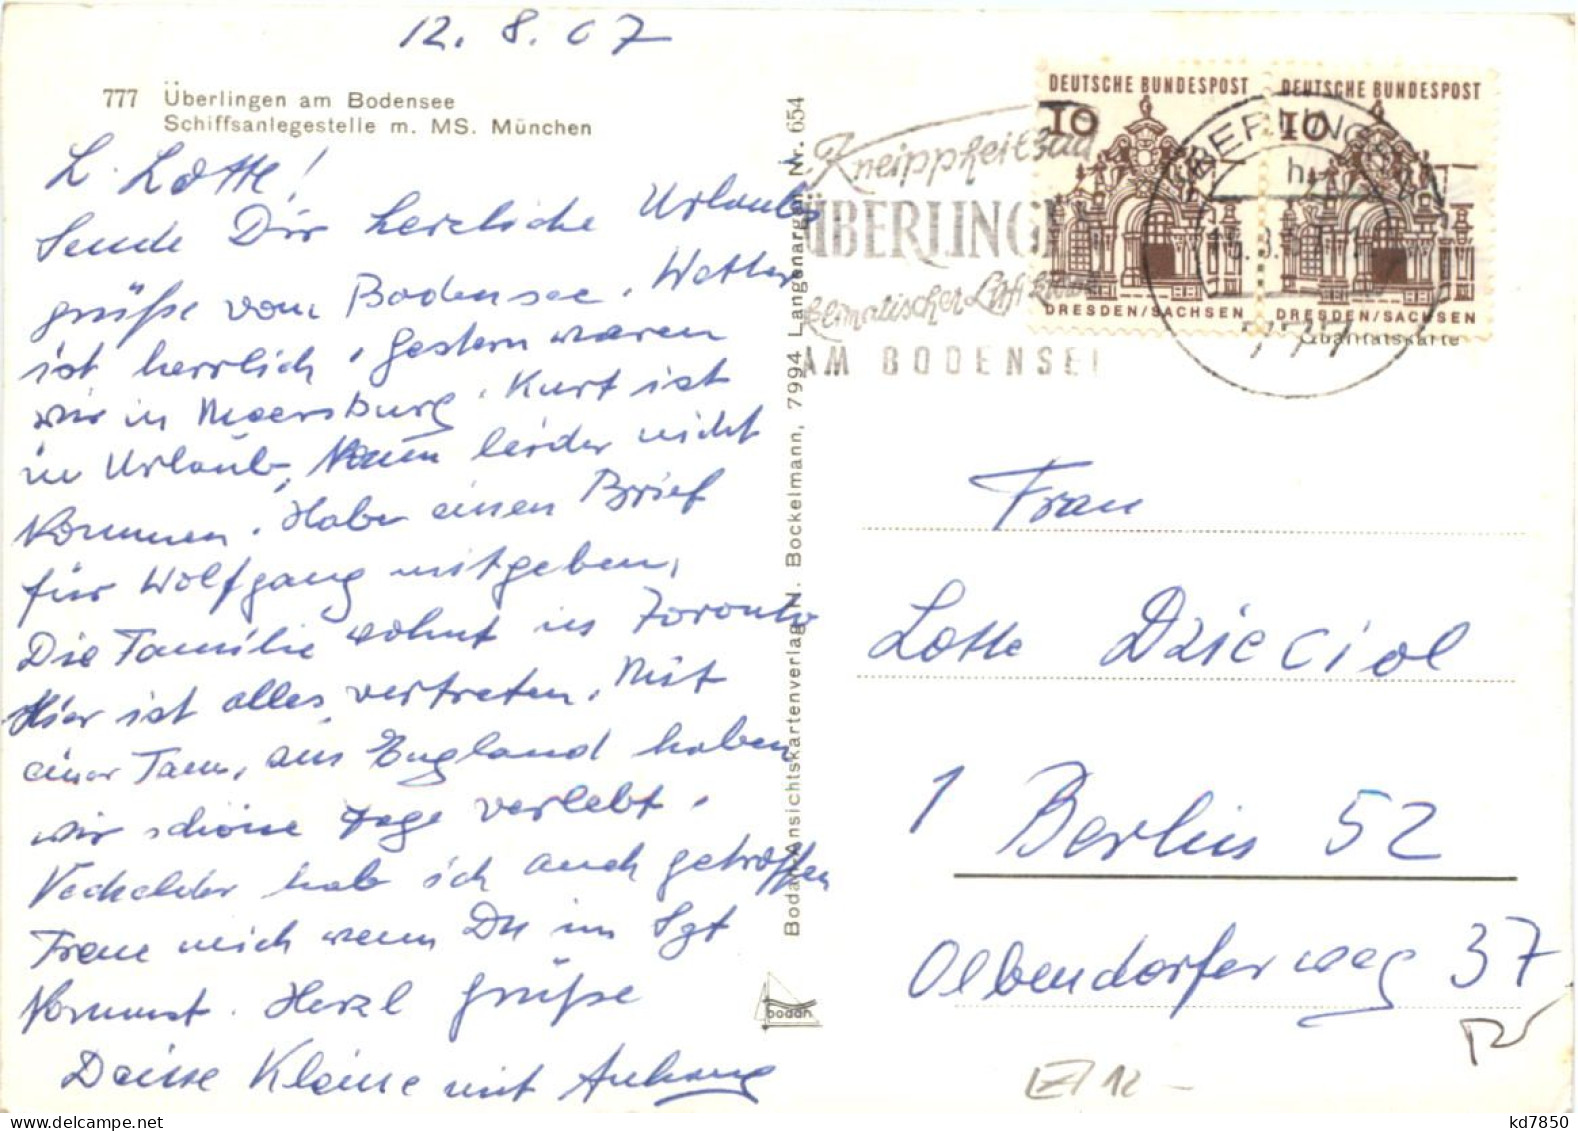 12. 8. 67
777 Überlingen am Bodensee
Schiffsanlegestelle m. MS. München
L. Lotte!
Sende Dir herzliche Urlaubs
grüße vom Bodensee. Wetter
ist herrlich, gestern waren
wir in Meersburg. Kurt ist
in Urlaub, kann leider nicht
kommen. Habe einen Brief
für Wolfgang mitgeben,
Die Familie wohnt in Toronto
Hier ist alles vertreten. Mit
einer Fam. aus England haben
wir schöne Tage verlebt.
hab ich auch getroffen
Freue mich wenn Du im Sgt
kommst. Herzl Grüße
Deine Kleine mit Anhang
Bodan-Ansichtskartenverlag N. Bockelmann, 7994 Langenargen Nr. 654
bodan
Kneippheilbad
ÜBERLINGE
klimatischer Luftkur
AM BODENSEE
DEUTSCHE BUNDESPOST
10
DRESDEN/SACHSEN
DEUTSCHE BUNDESPOST
10
DRESDEN/SACHSEN
ÜBERLINGEN
h
Qualitätskarte
Frau
Lotte Dzieciol
1 Berlin 52
Olbendorferweg 37
kd7850